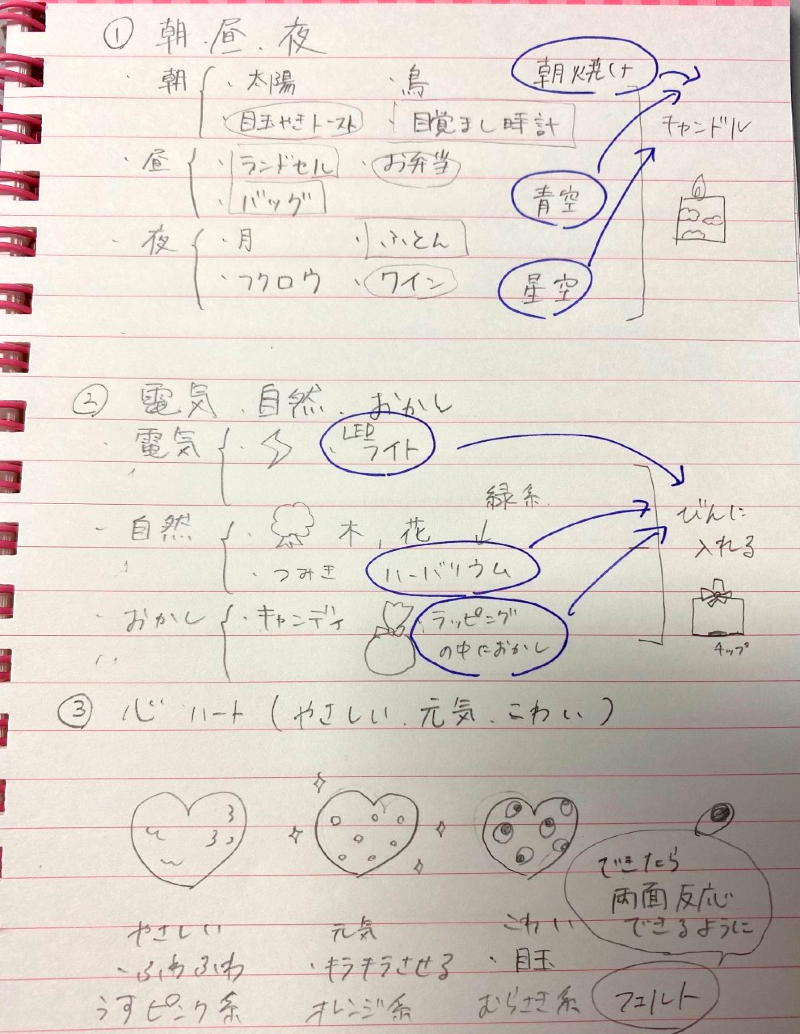 ① 朝.昼.夜
・朝 ・太陽 ・鳥 朝焼け
・目玉やきトースト ・目覚まし時計 キャンドル
・昼 ・ランドセル ・お弁当
・バッグ 青空
・夜 ・月 ・ふとん
・フクロウ ・ワイン 星空
② 電気.自然.おかし
・電気 ・LEDライト
緑系
・自然 ・木,花 びんに
・つみき ハーバリウム 入れる
・おかし ・キャンディ ・ラッピング
の中におかし チップ
③ 心 ハート(やさしい.元気.こわい)
できたら
両面反応
できるように
やさしい 元気 こわい
・ふわふわ ・キラキラさせる ・目玉
うすピンク系 オレンジ系 むらさき系 フェルト